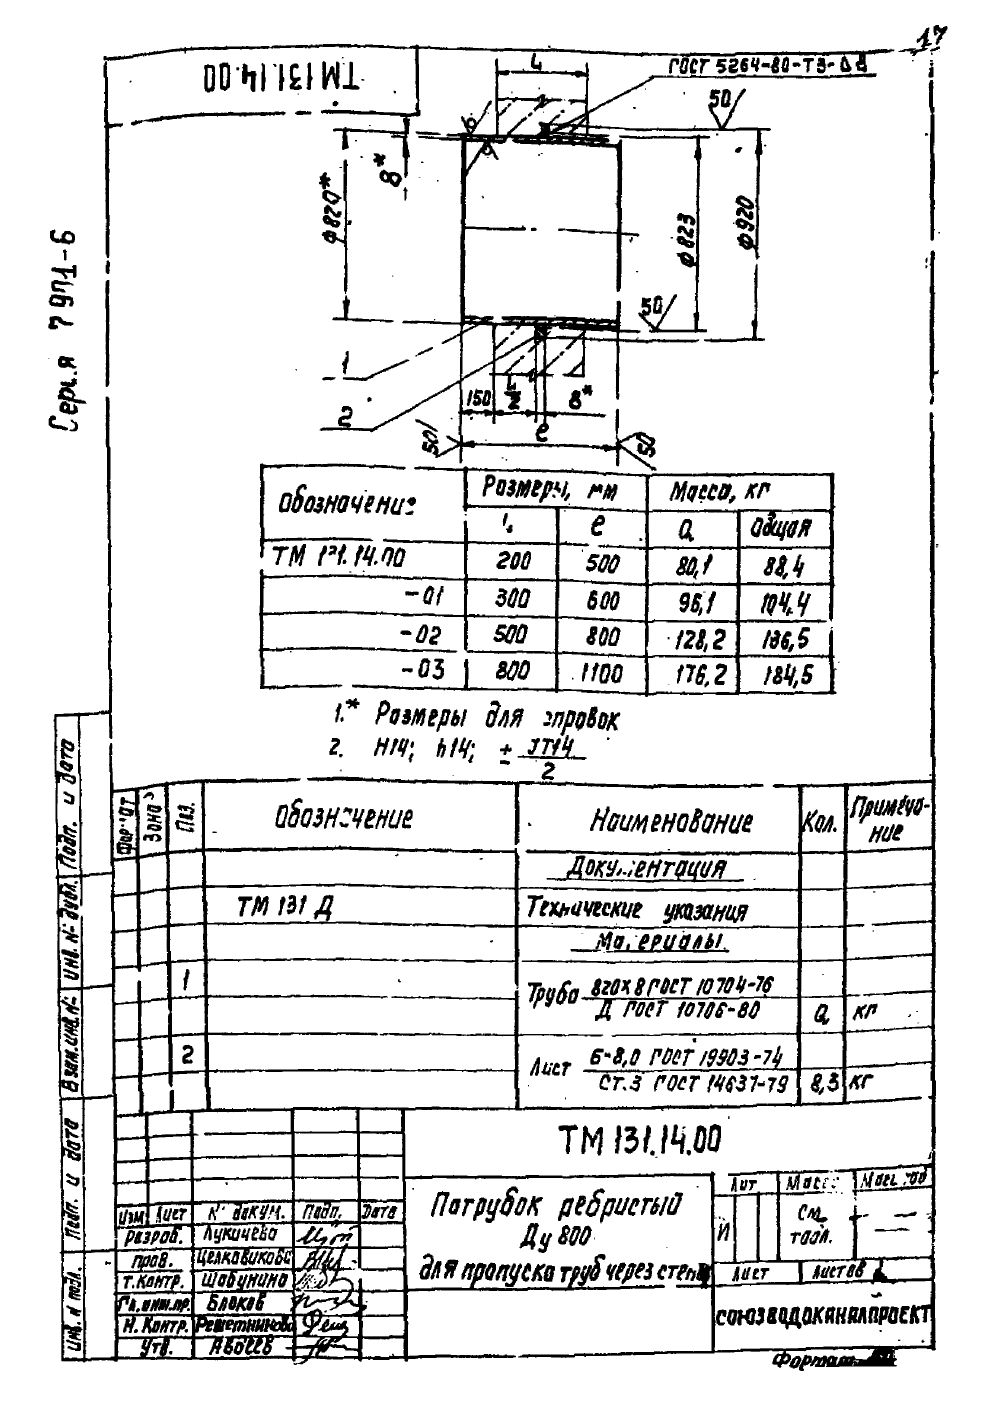 17
ТМ 131.14.00
Серия 7.901-6
L
ГОСТ 5264-80-Т3-Δ8
50
8*
ф820*
ф823
ф920
50
1
2
150
L/2
8*
50
ℓ
50
Обозначение
Размеры, мм
Масса, кг
L
ℓ
Q
Общая
ТМ 131.14.00 200 500 80,1 88,4
-01 300 600 96,1 104,4
-02 500 800 128,2 136,5
-03 800 1100 176,2 184,5
1.* Размеры для справок
2. H14; h14; ± JT14/2
Формат
Зона
Поз.
Обозначение
Наименование
Кол.
Примеча-
ние
Документация
ТМ 131 Д
Технические указания
Материалы
1
Труба 820х8 ГОСТ 10704-76
Д ГОСТ 10706-80
Q кг
2
Лист Б-8,0 ГОСТ 19903-74
Ст.3 ГОСТ 14637-79
8,3 кг
Подп. и дата
Инв. № дубл.
Взам. инв. №
Подп. и дата
Инв. № подл.
ТМ 131.14.00
Изм. Лист № докум. Подп. Дата
Разраб. Лукичева
Пров. Целковикова
Т.контр. Шабунина
Гл. инж.пр. Блоков
Н. Контр. Решетникова
Утв. Авдеев
Патрубок ребристый
Ду 800
для пропуска труб через стены
Лит Масса Масштаб
И
См.
табл.
Лист
Листов
СОЮЗВОДОКАНАЛПРОЕКТ
Формат